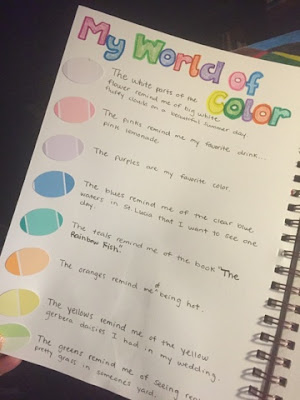 My World of
Color
The white parts of the
flower remind me of big white
fluffy clouds on a beautiful summer day
The pinks remind me my favorite drink...
pink lemonade.
The purples are my favorite color.
The blues remind me of the clear blue
waters in St. Lucia that I want to see one
day.
The teals remind me of the book "The
Rainbow Fish"
The oranges remind me of being hot.
The yellows remind me of the yellow
gerbera daisies I had in my wedding.
The greens remind me of seeing
pretty grass in someones yard.